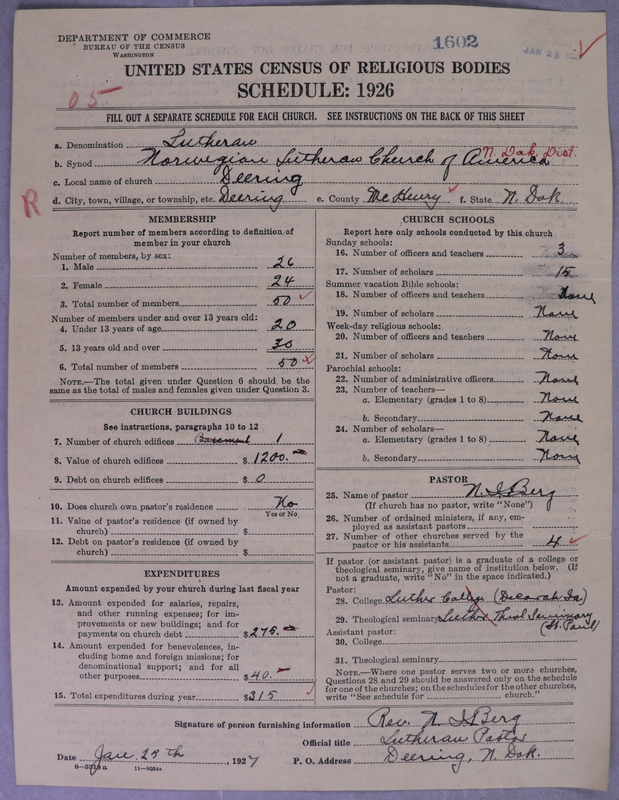 DEPARTMENT OF COMMERCE
BUREAU OF THE CENSUS
WASHINGTON
1602
JAN 28
UNITED STATES CENSUS OF RELIGIOUS BODIES
05
SCHEDULE: 1926
FILL OUT A SEPARATE SCHEDULE FOR EACH CHURCH. SEE INSTRUCTIONS ON THE BACK OF THIS SHEET
a. Denomination Lutheran
b. Synod Norwegian Lutheran Church of America N. Dak. Dist.
c. Local name of church Deering
R
d. City, town, village, or township, etc. Deering e. County McHenry f. State N. Dak.
MEMBERSHIP
Report number of members according to definition of
member in your church
Number of members, by sex:
1. Male 26
2. Female 24
3. Total number of members 50
Number of members under and over 13 years old:
4. Under 13 years of age 20
5. 13 years old and over 30
6. Total number of members 50
NOTE.—The total given under Question 6 should be the
same as the total of males and females given under Question 3.
CHURCH BUILDINGS
See instructions, paragraphs 10 to 12
7. Number of church edifices Basement 1
8. Value of church edifices $ 1200.
9. Debt on church edifices $ 0
10. Does church own pastor's residence No
Yes or No
11. Value of pastor's residence (if owned by
church) $
12. Debt on pastor's residence (if owned by
church) $
EXPENDITURES
Amount expended by your church during last fiscal
year
13. Amount expended for salaries, repairs,
and other running expenses; for im-
provements or new buildings; and for
payments on church debt $275.
14. Amount expended for benevolences, in-
cluding home and foreign missions; for
denominational support; and for all
other purposes $40.
15. Total expenditures during year $315
CHURCH SCHOOLS
Report here only schools conducted by this church
Sunday schools:
16. Number of officers and teachers 3
17. Number of scholars 15
Summer vacation Bible schools:
18. Number of officers and teachers None
19. Number of scholars None
Week-day religious schools:
20. Number of officers and teachers None
21. Number of scholars None
Parochial schools:
22. Number of administrative officers None
23. Number of teachers—
a. Elementary (grades 1 to 8) None
b. Secondary None
24. Number of scholars—
a. Elementary (grades 1 to 8) None
b. Secondary None
PASTOR
25. Name of pastor N. I. Berg
(If church has no pastor, write "None")
26. Number of ordained ministers, if any, em-
ployed as assistant pastors
27. Number of other churches served by the
pastor or his assistants 4
If pastor (or assistant pastor) is a graduate of a college or
theological seminary, give name of institution below. (If
not a graduate, write "No" in the space indicated.)
Pastor:
28. College Luther College (Decorah Ia)
29. Theological seminary Luther Theol Seminary
(St. Paul)
Assistant pastor:
30. College
31. Theological seminary
NOTE.—Where one pastor serves two or more churches,
Questions 28 and 29 should be answered only on the schedule
for one of the churches; on the schedules for the other churches,
write "See schedule for church."
Signature of person furnishing information Rev. N. I. Berg
Official title Lutheran Pastor
Date Jan. 27th, 1927 P. O. Address Deering, N. Dak.
8—5318a 11—9034a